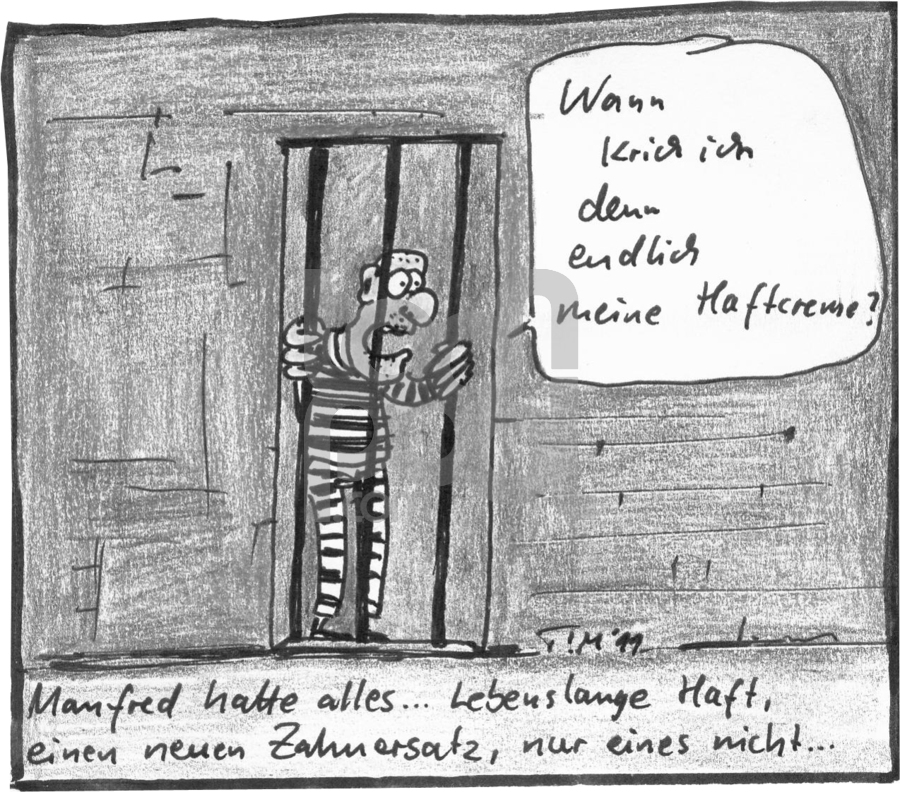 Wann
krich ich
denn
endlich
meine Haftcreme?
TIM'11
Manfred hatte alles... Lebenslange Haft,
einen neuen Zahnersatz, nur eines nicht...